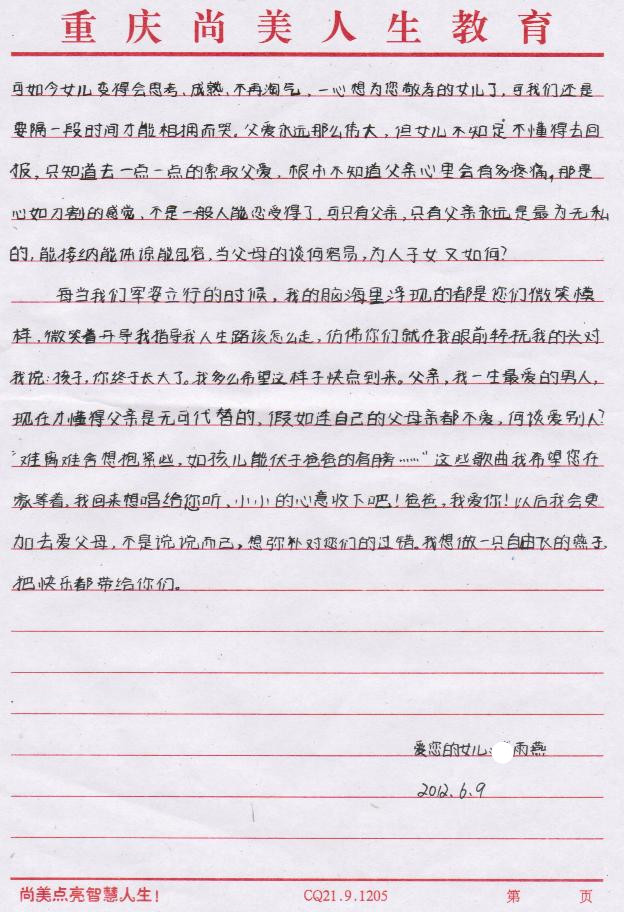 重庆尚美人生教育
可如今女儿变得会思考、成熟、不再淘气，一心想为您敬孝的女儿了，可我们还是
要隔一段时间才能相拥而哭。父爱永远那么伟大，但女儿不知足不懂得去回
报，只知道去一点一点的索取父爱，根本不知道父亲心里会有多疼痛，那是
心如刀割的感觉、不是一般人能忍受得了，可只有父亲，只有父亲永远是最为无私
的，能接纳能体谅能包容，当父母的谈何容易，为人子女又如何？
每当我们军姿立行的时候，我的脑海里浮现的都是您们微笑模
样，微笑着开导我指导我人生路该怎么走，仿佛你们就在我眼前轻抚我的头对
我说：孩子，你终于长大了。我多么希望这样子快点到来。父亲，我一生最爱的男人，
现在才懂得父亲是无可代替的，假如连自己的父母亲都不爱，何谈爱别人？
“难离难舍想抱紧些，如孩儿能伏于爸爸的肩膀……”这些歌曲我希望您在
家等着，我回来想唱给您听、小小的心意收下吧！爸爸，我爱你！以后我会更
加去爱父母，不是说说而已，想弥补对您们的过错。我想做一只自由飞的燕子，
把快乐都带给你们。
爱您的女儿：雨燕
2012.6.9
尚美点亮智慧人生！ CQ21.9.1205 第 页